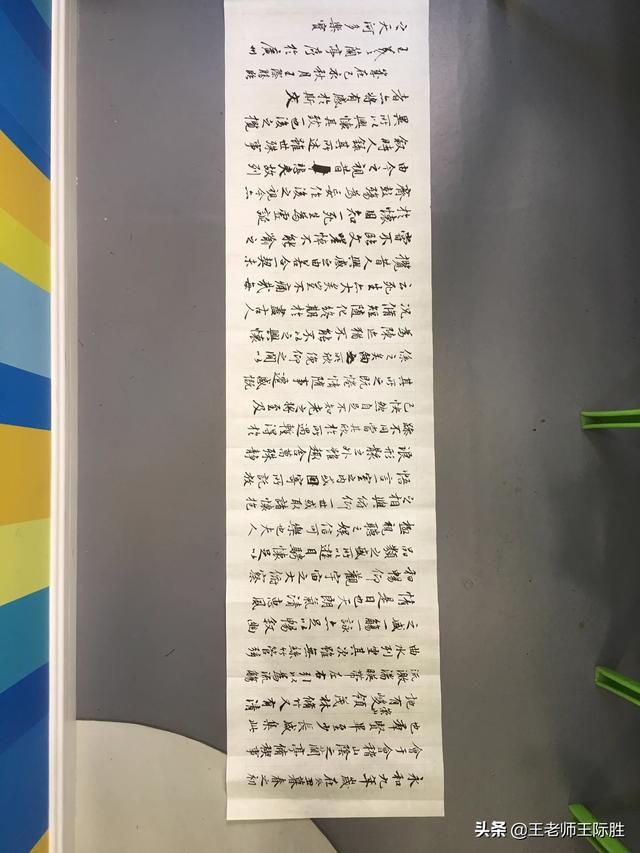 永和九年歲在癸丑暮春之初
會于會稽山陰之蘭亭脩禊事
也群賢畢至少長咸集此
地有崇山峻領茂林脩竹又有清
流激湍暎帶左右引以為流觴
曲水列坐其次雖無絲竹管弦
之盛一觴一詠亦足以暢敘幽
情是日也天朗氣清惠風
和暢仰觀宇宙之大俯察
品類之盛所以遊目騁懷足以
極視聽之娛信可樂也夫人
之相與俯仰一世或取諸懷抱
悟言一室之內或因寄所託放
浪形骸之外雖趣舍萬殊靜
躁不同當其欣於所遇輒得於
己快然自足不知老之將至及
其所之既惓情隨事遷感慨
係之矣向之所欣俛仰之間以
為陳迹猶不能不以之興懷
況脩短隨化終期於盡古人
云死生亦大矣豈不痛哉每
攬昔人興感之由若合一契未
嘗不臨文嗟悼不能喻之
於懷固知一死生為虛誕
齊彭殤為妄作後之視今亦
由今之視昔悲夫故列
敘時人錄其所述雖世殊事
異所以興懷其致一也後之攬
者亦將有感於斯文
歲在己亥秋月王際勝臨
王羲之蘭亭序於廣州
之天河多樂寶
头条 @王老师王际胜